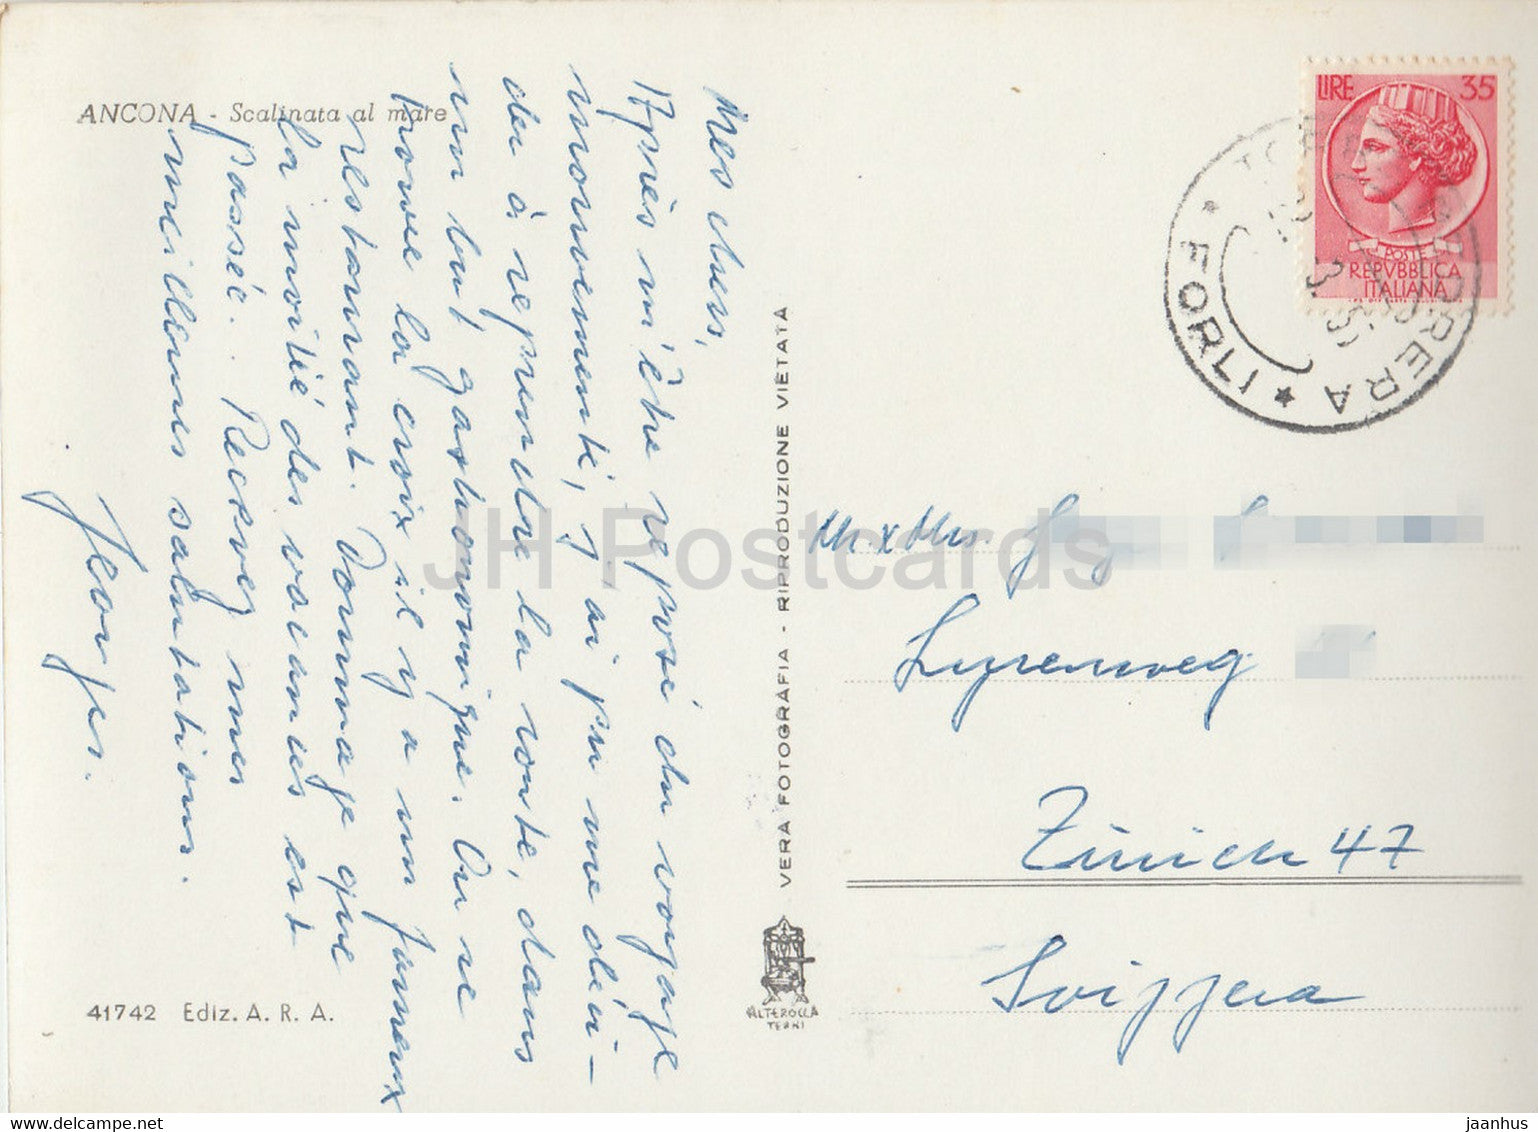 ANCONA - Scalinata al mare
Mes chers,
Après m'être reposé du voyage
mouvementé, j'ai pu me déci-
der à reprendre la route, dans
un but gastronomique. On se
trouve la croix il y a un fameux
restaurant. Dommage que
la moitié des vacances est
passée. Recevez mes
meilleures salutations.
Georges.
41742 Ediz. A. R. A.
VERA FOTOGRAFIA - RIPRODUZIONE VIETATA
ALTEROCCA
TERNI
LIRE 35
POSTE
REPVBBLICA
ITALIANA
FORLI
Lyrenweg
Zürich 47
Svizzera
JH Postcards
jaanhus
www.delcampe.net